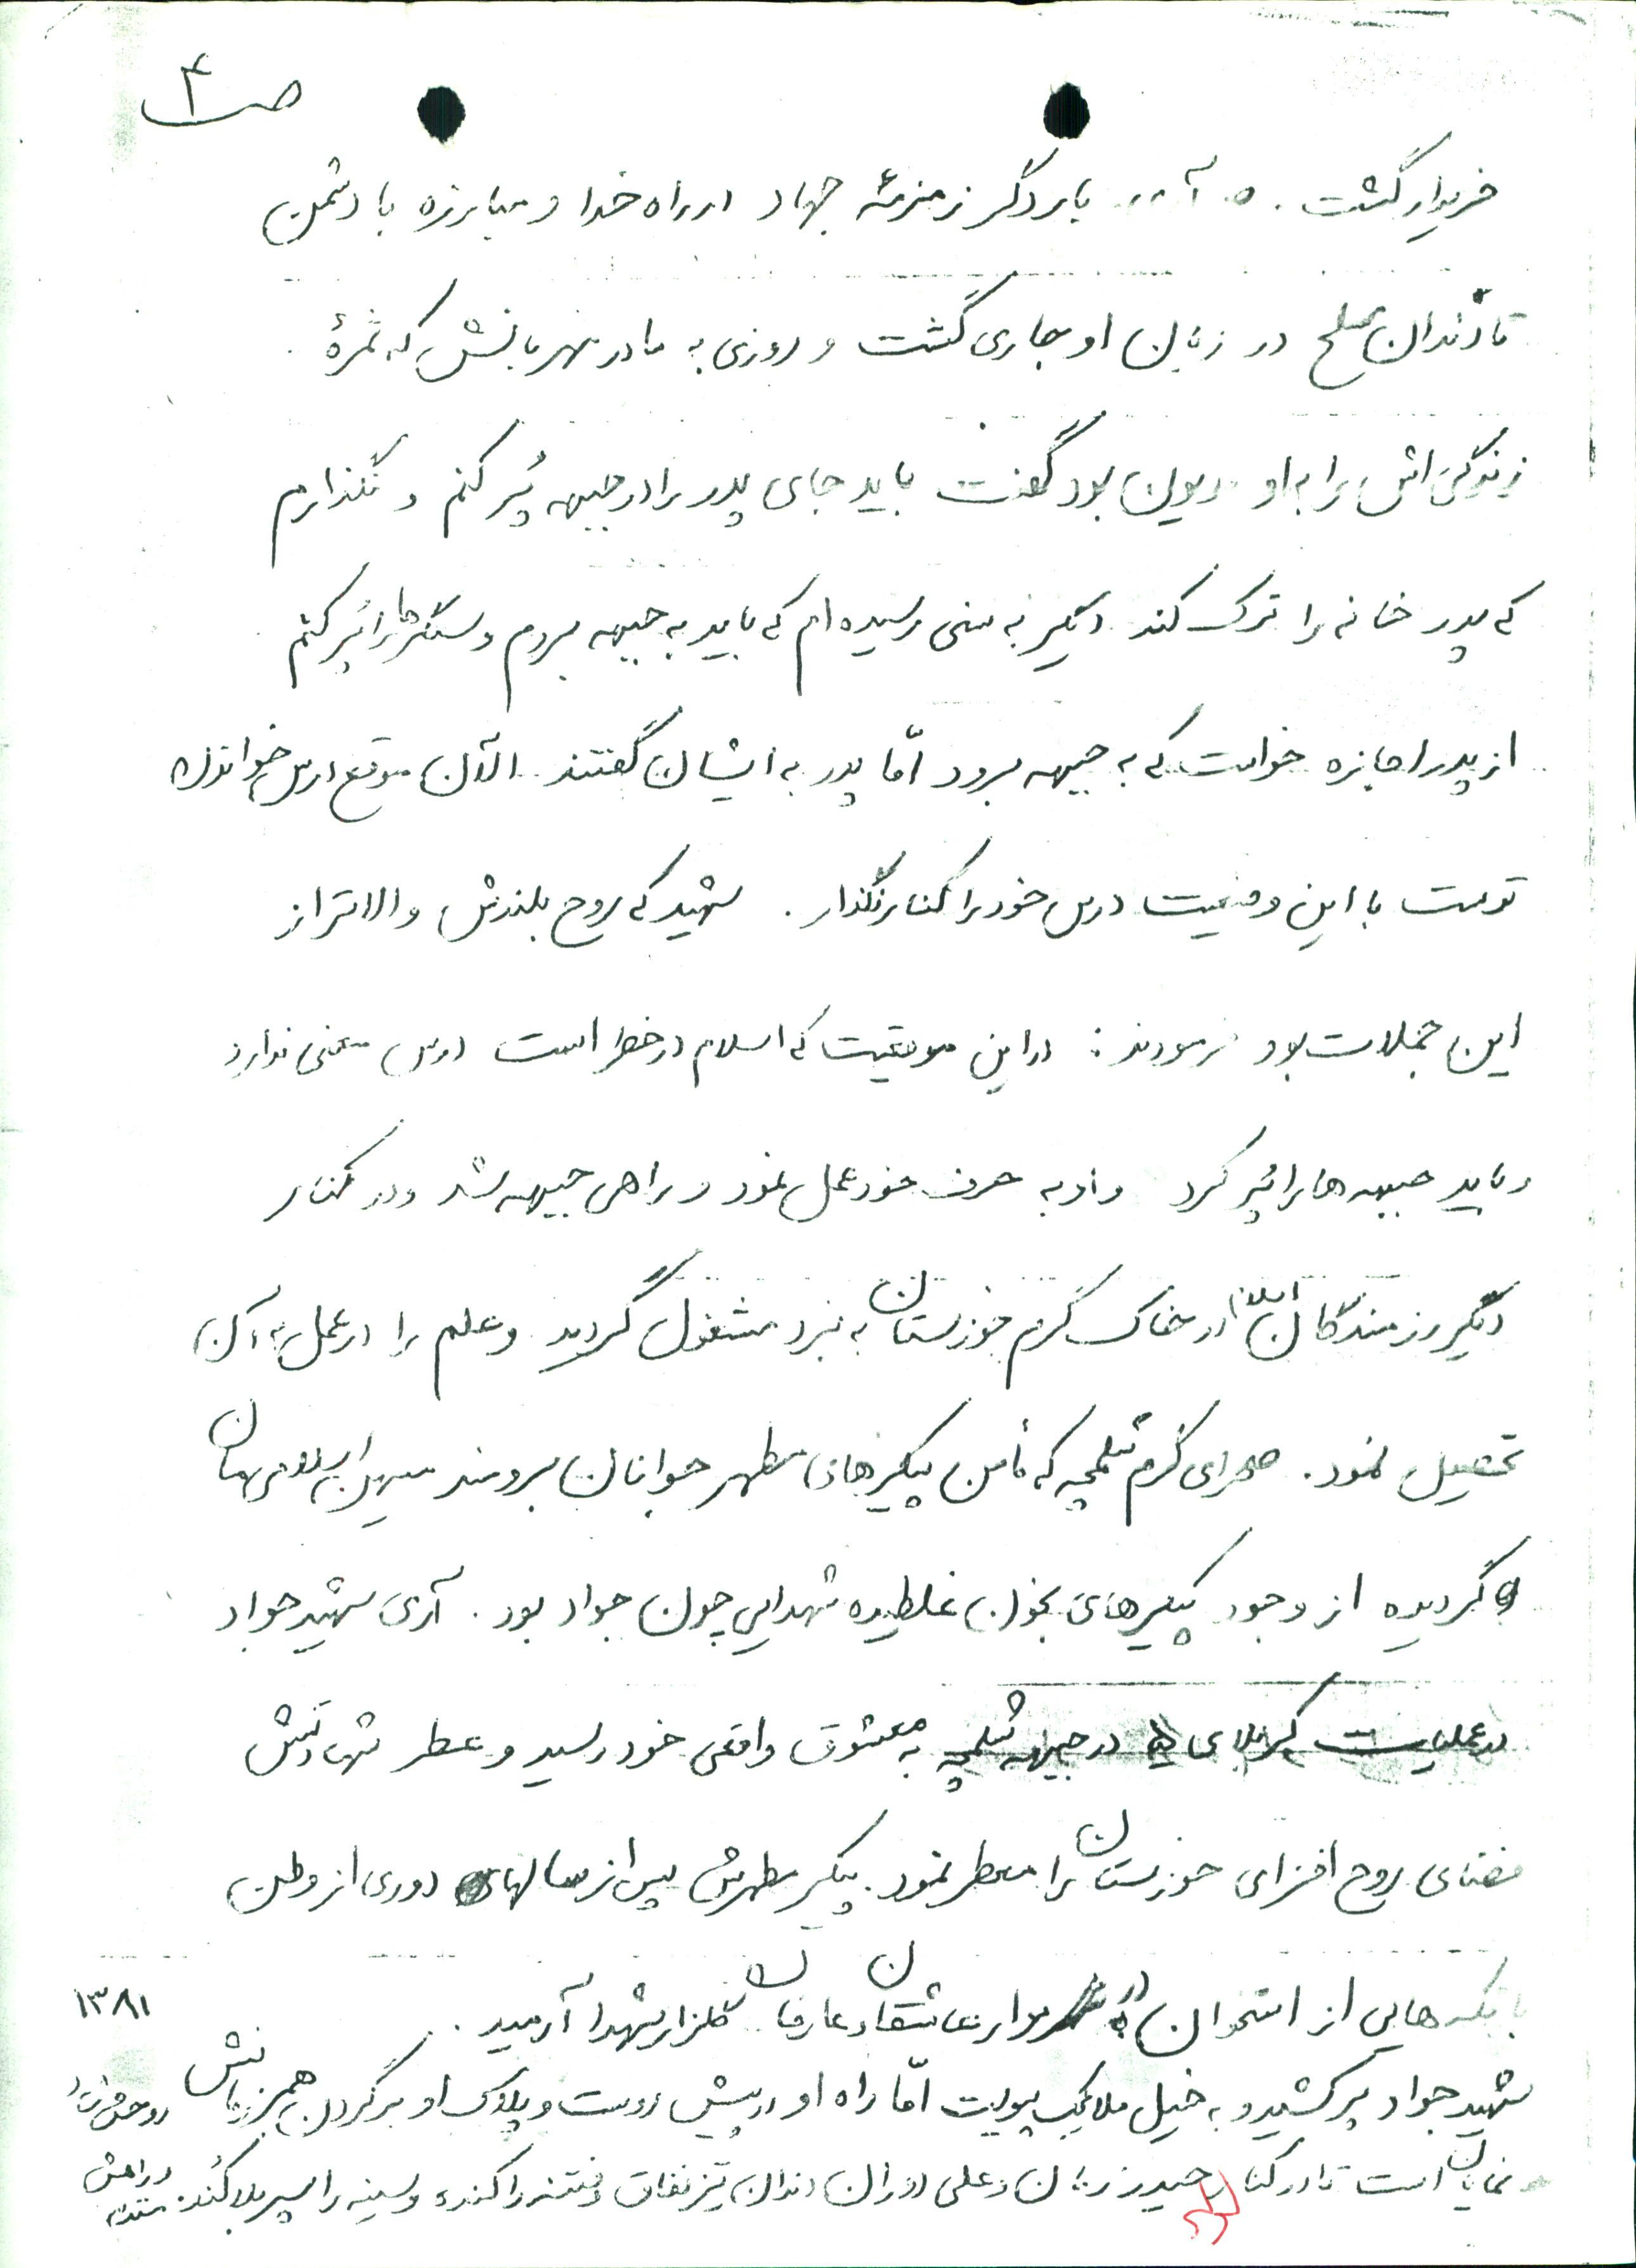 ص ۴
خریدار گشت. بار دگر زمزمهٔ جهاد در راه خدا و مبارزه با دشمن
تا دندان مسلح در زبان او جاری گشت و روزی به مادر مهربانش که ثمرهٔ
زندگی اش را به او مدیون بود گفت باید جای پدر را در جبهه پُر کنم و نگذارم
که پدر خانه را ترک کند دیگر به سنی رسیده ام که باید به جبهه بروم و سنگرها را پُر کنم
از پدر اجازه خواست که به جبهه برود امّا پدر به ایشان گفتند الآن موقع درس خواندن
توست با این وضعیت درس خود را کنار نگذار. شهید که روح بلندش والاتر از
این جملات بود فرمودند: در این موقعیت که اسلام در خطر است درس معنی ندارد
و باید جبهه ها را پُر کرد و او به حرف خود عمل نمود و راهی جبهه شد و در کنار
دیگر رزمندگان اسلام در خاک گرم خوزستان به نبرد مشغول گردید و علم را در عمل به آن
تحصیل نمود. صحرای گرم شلمچه که مأمن پیکرهای مطهر جوانان برومند میهن اسلامی مان
گردیده از وجود پیکرهای بخون غلطیده شهدایی چون جواد بود. آری شهید جواد
در عملیات کربلای در جبهه شلمچه به معشوق واقعی خود رسید و عطر شهادتش
فضای روح افزای خوزستان را معطر نمود. پیکر مطهرش پس از سالهای دوری از وطن
با تکه هایی از استخوان در جوار عاشقان و عارفان گلزار شهدا آرمید.
۱۳۸۱
شهید جواد پر کشید و به خیل ملایک پیوست امّا راه او در پیش روست و پلاک او بر گردن همرزمانش
نمایان است تا در کنار حیدر زمان و علی دوران دندان تیز نفاق و فتنه را کنده و سینه را سپر بلا کنند